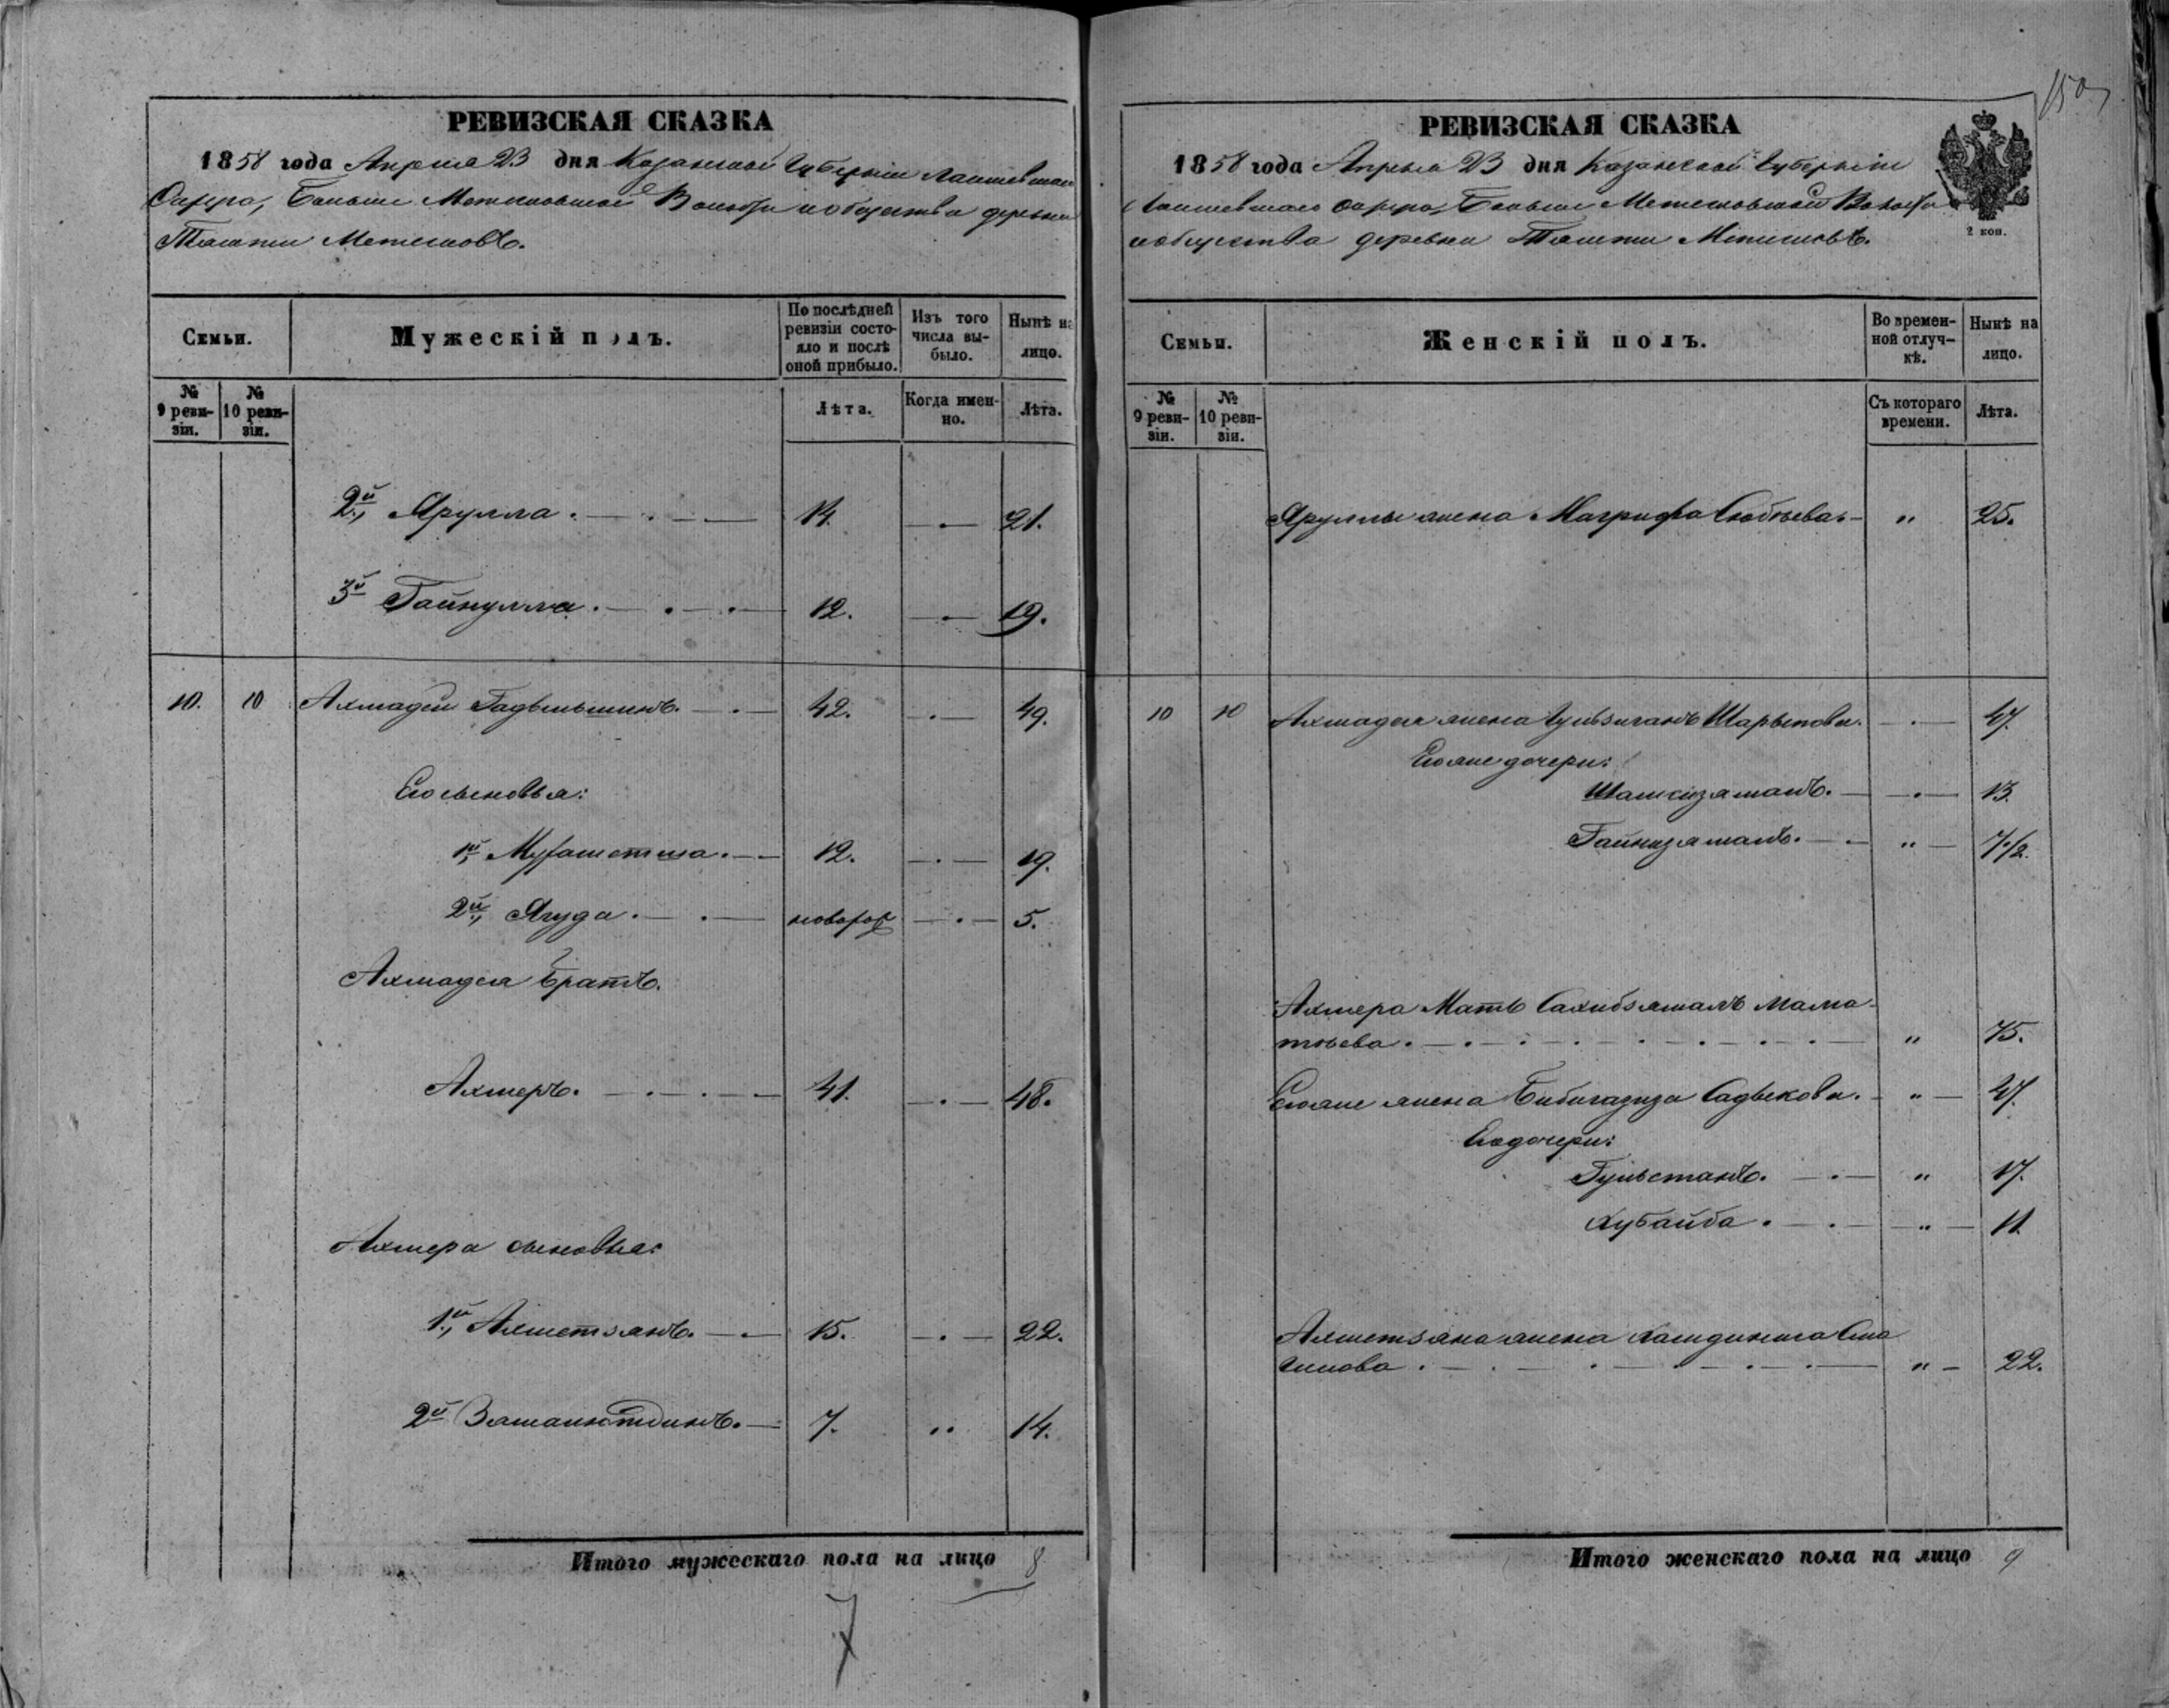 150
РЕВИЗСКАЯ СКАЗКА
1858 года Апреля 23 дня Казанской Губернии Лаишевскаго
Округа, Больше Метесковской Волости и общества деревни
Ташти Метесковъ.
Семьи.
Мужескій полъ.
По послѣдней ревизіи состояло и послѣ оной прибыло.
Изъ того числа выбыло.
Нынѣ на лицо.
№ 9 ревизіи.
№ 10 ревизіи.
Лѣта.
Когда именно.
Лѣта.
2й, Ярулла . — . — 14. — . — 21.
3й Гайнулла . — . — . — 12. — . — 19.
10. 10 Ахмадей Гадельшинъ. — . — 42. — . — 49.
Его сыновья:
1й, Мухаметша . — 12. — . — 19.
2й, Ягуда . — . — новорож — . — 5.
Ахмадея братъ.
Ахмеръ. — . — . — 41. — . — 48.
Ахмера сыновья:
1й, Ахметзянъ. — . — 15. — . — 22.
2й Замалютдинъ. — 7. " 14.
Итого мужескаго пола на лицо 8
7
РЕВИЗСКАЯ СКАЗКА
1858 года Апреля 23 дня Казанской Губерніи
Лаишевскаго округа, Больше Метесковской Волости
и общества деревни Ташти Метесковъ.
2 коп.
Семьи.
Женскій полъ.
Во временной отлучкѣ.
Нынѣ на лицо.
№ 9 ревизіи.
№ 10 ревизіи.
Съ котораго времени.
Лѣта.
Яруллы жена Магрифа — " 25.
10 10 Ахмадея жена Шарыпова. — . — 47.
Его же дочери:
Шамсизямалъ. — — . — 13.
Гайнизямалъ. — . — " — 7 1/2.
Ахмера Мать Сахибзямалъ Мама-
тьева . — . — . — . — " 75.
Его же жена Бибигазиза Садыкова. — " — 47.
Его дочери:
Гульстанъ. — . — " 17.
Хубайба . — . — " — 11.
Ахметзяна жена
. — . — . — . — " — 22.
Итого женскаго пола на лицо 9